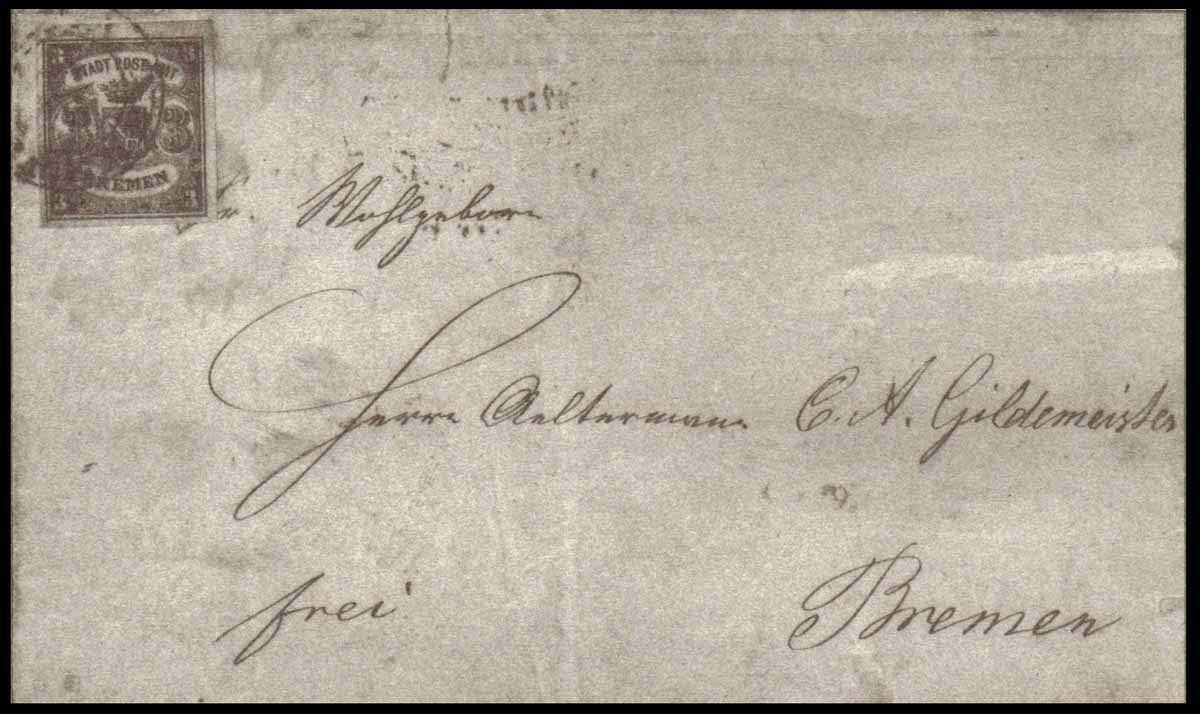 STADT POST AMT
3 3
BREMEN
Sr. Wohlgeborn
Herrn Aeltermann C. A. Gildemeister
frei
Bremen